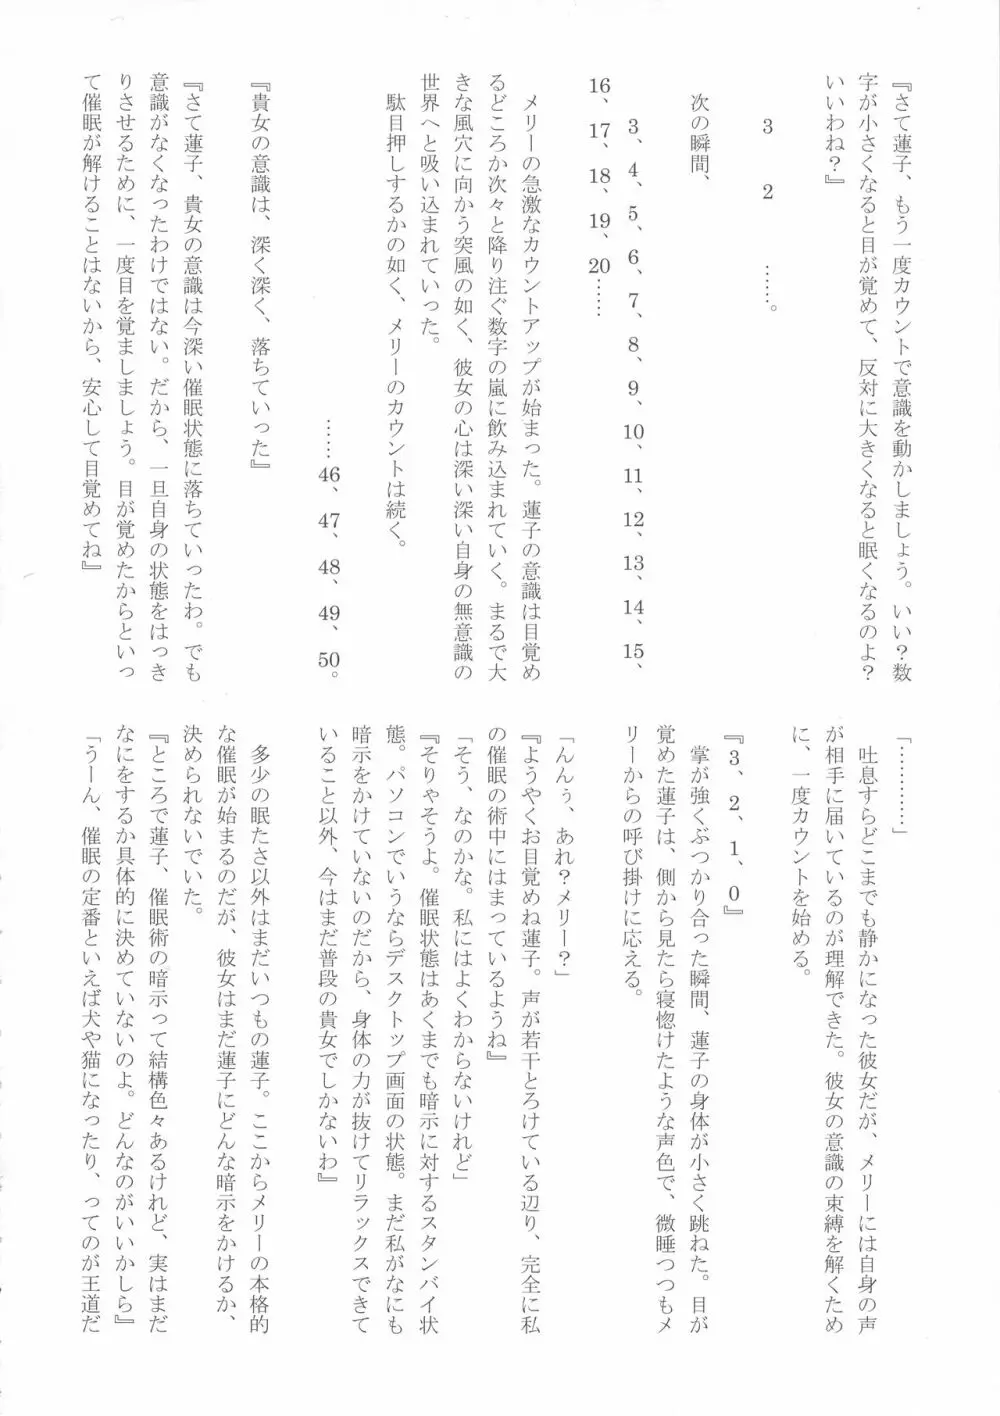 『さて蓮子、もう一度カウントで意識を動かしましょう。いい？数
字が小さくなると目が覚めて、反対に大きくなると眠くなるのよ？
いいわね？』
3　2　……。
次の瞬間、
3、4、5、6、7、8、9、10、11、12、13、14、15、
16、17、18、19、20……
メリーの急激なカウントアップが始まった。蓮子の意識は目覚め
るどころか次々と降り注ぐ数字の嵐に飲み込まれていく。まるで大
きな風穴に向かう突風の如く、彼女の心は深い深い自身の無意識の
世界へと吸い込まれていった。
駄目押しするかの如く、メリーのカウントは続く。
……46、47、48、49、50。
『貴女の意識は、深く深く、落ちていった』
『さて蓮子、貴女の意識は今深い催眠状態に落ちていったわ。でも
意識がなくなったわけではない。だから、一旦自身の状態をはっき
りさせるために、一度目を覚ましましょう。目が覚めたからといっ
て催眠が解けることはないから、安心して目覚めてね』
「…………」
吐息すらどこまでも静かになった彼女だが、メリーには自身の声
が相手に届いているのが理解できた。彼女の意識の束縛を解くため
に、一度カウントを始める。
『3、2、1、0』
掌が強くぶつかり合った瞬間、蓮子の身体が小さく跳ねた。目が
覚めた蓮子は、側から見たら寝惚けたような声色で、微睡つつもメ
リーからの呼び掛けに応える。
「んんぅ、あれ？メリー？」
『ようやくお目覚めね蓮子。声が若干とろけている辺り、完全に私
の催眠の術中にはまっているようね』
「そう、なのかな。私にはよくわからないけれど」
『そりゃそうよ。催眠状態はあくまでも暗示に対するスタンバイ状
態。パソコンでいうならデスクトップ画面の状態。まだ私がなにも
暗示をかけていないのだから、身体の力が抜けてリラックスできて
いること以外、今はまだ普段の貴女でしかないわ』
多少の眠たさ以外はまだいつもの蓮子。ここからメリーの本格的
な催眠が始まるのだが、彼女はまだ蓮子にどんな暗示をかけるか、
決められないでいた。
『ところで蓮子、催眠術の暗示って結構色々あるけれど、実はまだ
なにをするか具体的に決めていないのよ。どんなのがいいかしら』
「うーん、催眠の定番といえば犬や猫になったり、ってのが王道だ